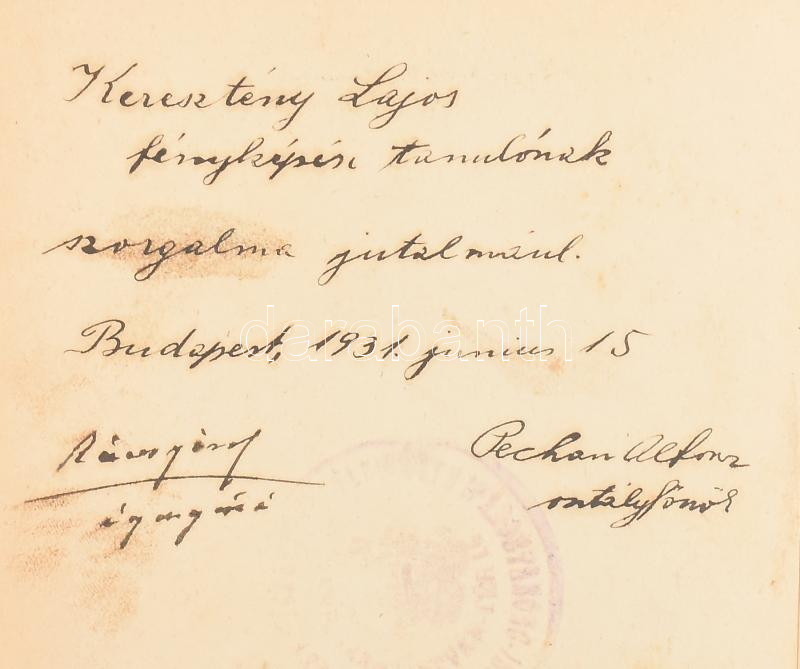 Keresztény Lajos
fényképész tanulónak
szorgalma jutalmául.
Budapest, 1931. junius 15
darabanth
Pechan Alfonz
osztályfőnök
igazgató